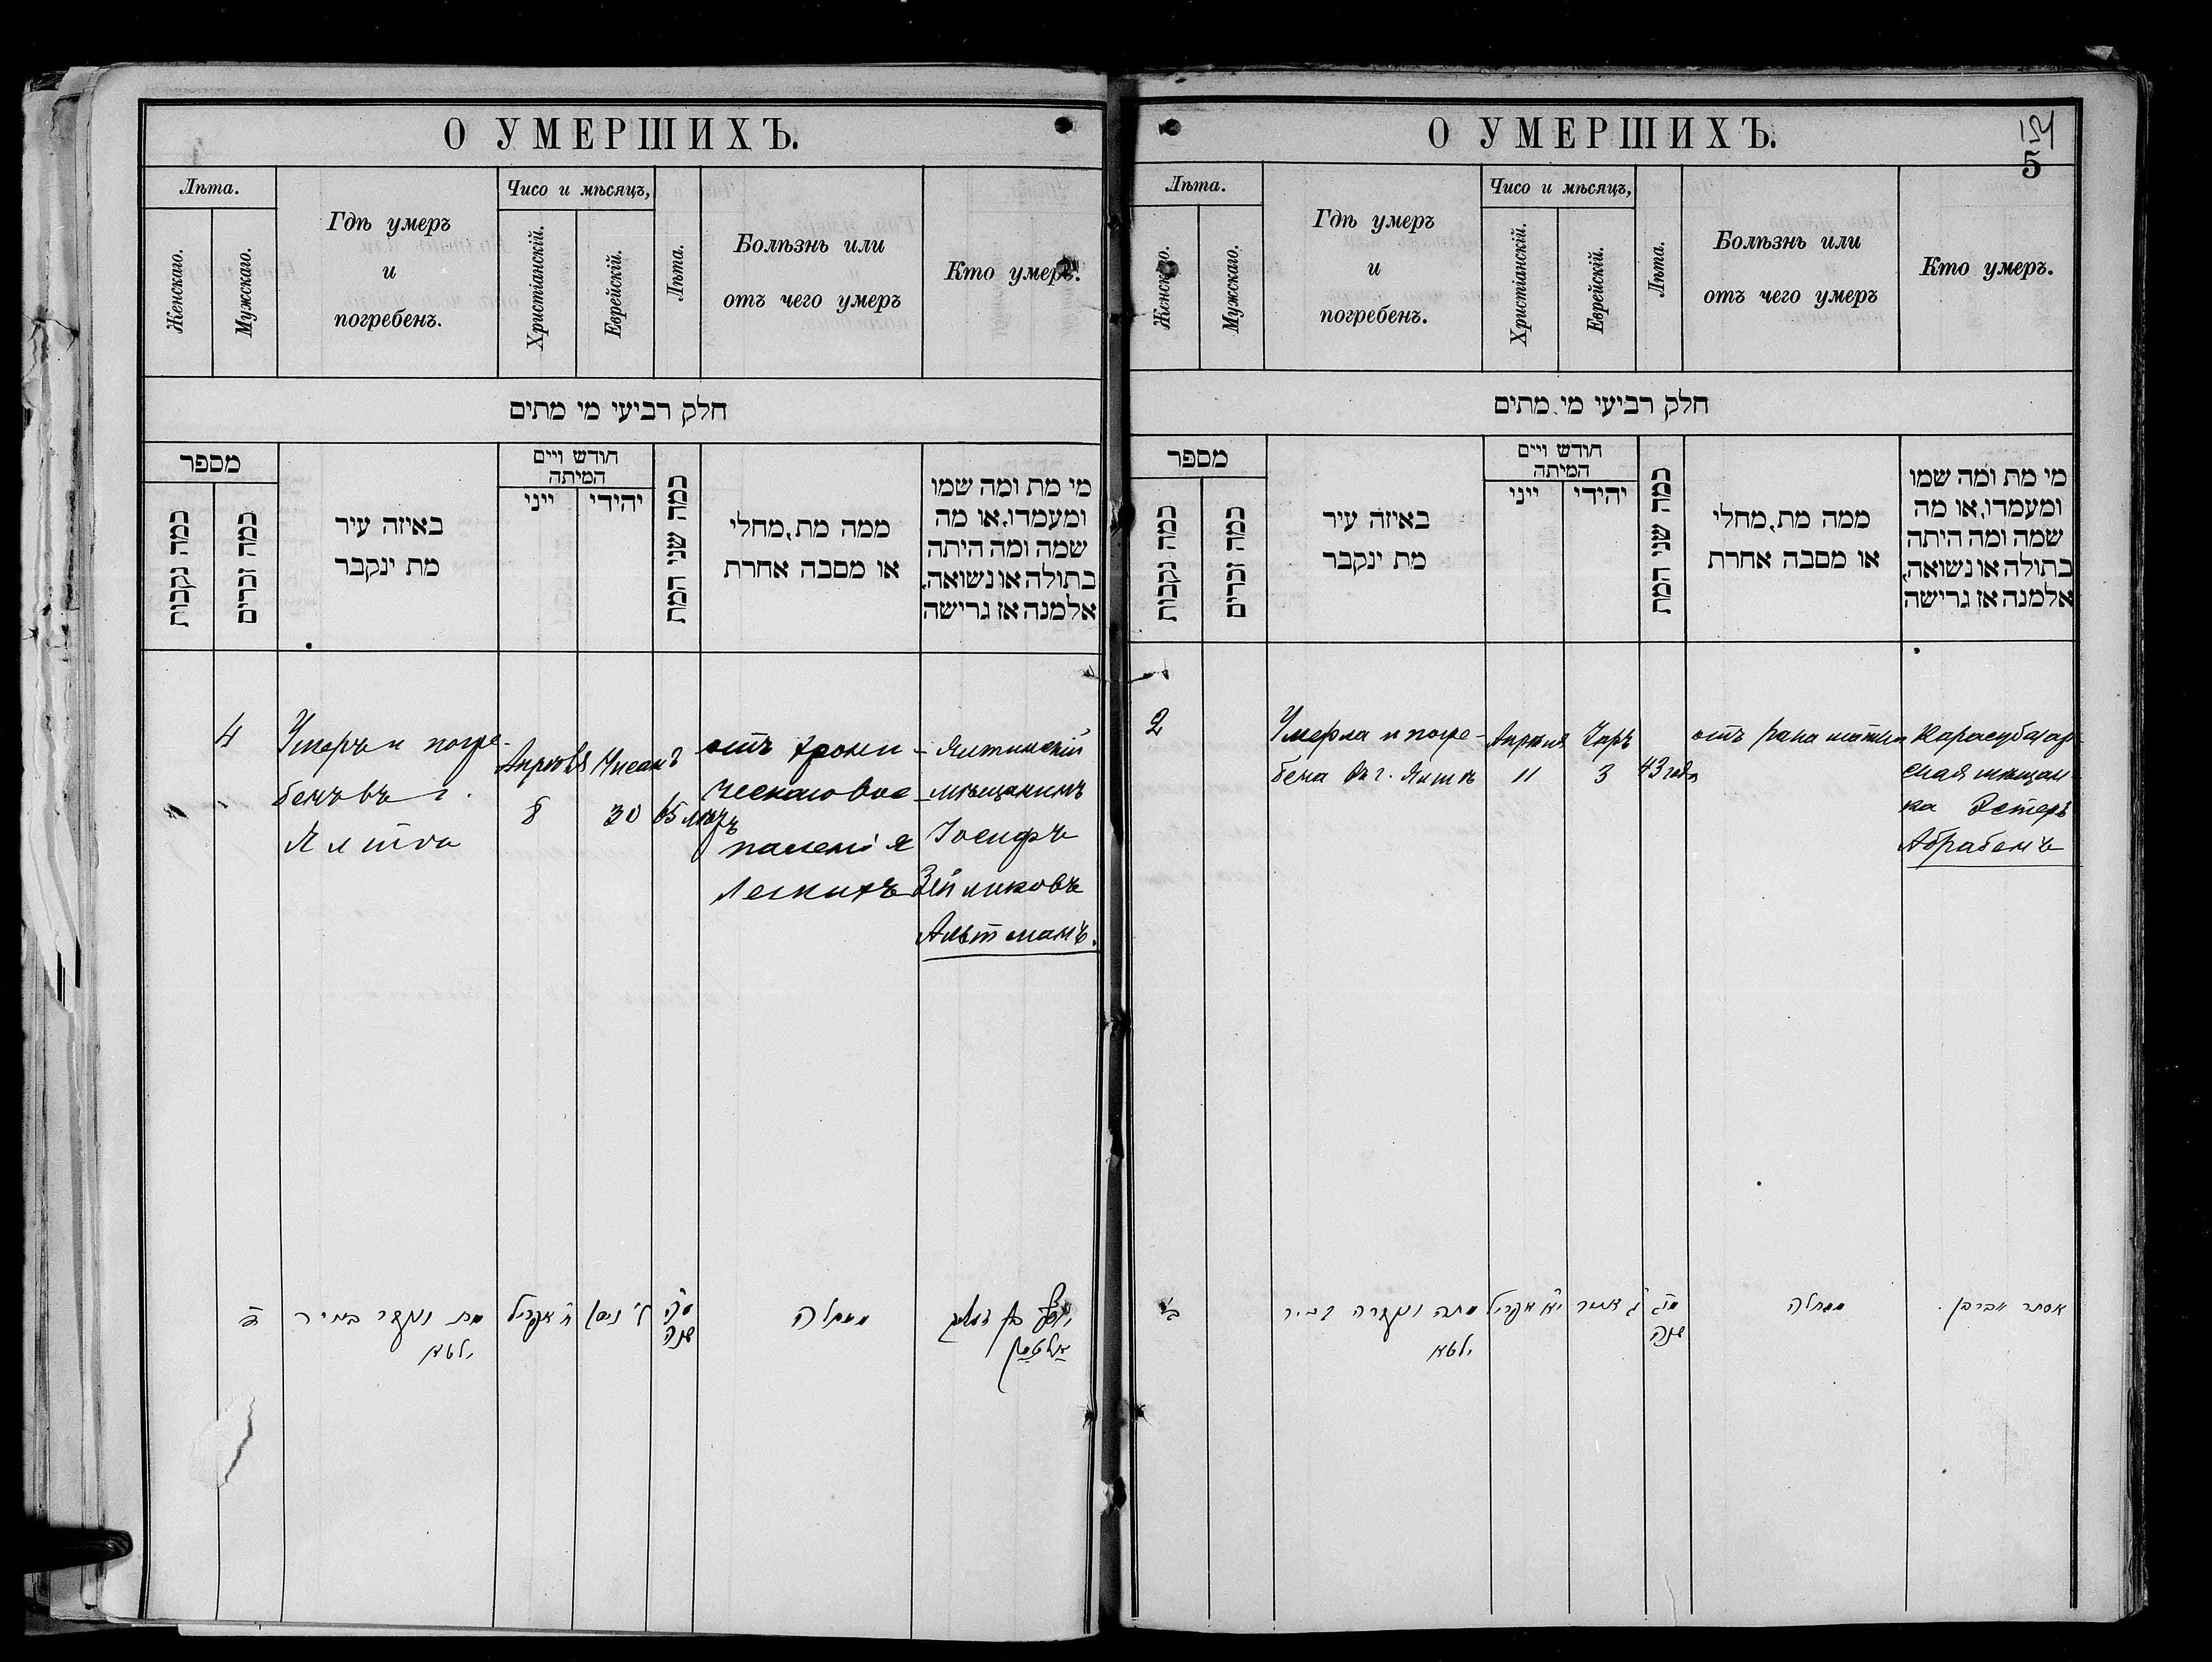 О УМЕРШИХЪ.
Лѣта.
Женскаго.
Мужскаго.
Гдѣ умеръ
и
погребенъ.
Чисо и мѣсяцъ,
Христіанскій.
Еврейскій.
Лѣта.
Болѣзнь или
отъ чего умеръ
Кто умеръ.
חלק רביעי מי מתים
מספר
כמה נקבות
כמה זכרים
באיזה עיר
מת ינקבר
חודש ויים
המיתה
ייני
יהידי
כמה שני המת
ממה מת, מחלי
או מסבה אחרת
מי מת ומה שמו
ומעמדו, או מה
שמה ומה היתה
בתולה או נשואה,
אלמנה אז גרישה
4
Умеръ и погре-
бенъ въ г.
Ялта
Апрѣля
8
Нисанъ
30
65 лѣтъ
отъ хрони-
ческаго вос-
паленія
Легкихъ
Ялтинскій
мѣщанинъ
Іосифъ
Зейликовъ
Альтманъ.
ילטא
ח אפריל
ל' ניסן
שנה
מחלה
אלטמן
О УМЕРШИХЪ.
5
Лѣта.
Женскаго.
Мужскаго.
Гдѣ умеръ
и
погребенъ.
Чисо и мѣсяцъ,
Христіанскій.
Еврейскій.
Лѣта.
Болѣзнь или
отъ чего умеръ
Кто умеръ.
חלק רביעי מי מתים
מספר
כמה נקבות
כמה זכרים
באיזה עיר
מת ינקבר
חודש ויים
המיתה
ייני
יהידי
כמה שני המת
ממה מת, מחלי
או מסבה אחרת
מי מת ומה שמו
ומעמדו, או מה
שמה ומה היתה
בתולה או נשואה,
אלמנה אז גרישה
2
Умерла и погре-
бена въ г. Ялтѣ
Апрѣля
11
Іаръ
3
43 года
отъ
Карасубазар-
ская мѣщан-
ка Эстеръ
Абрабенъ
ב
מתה ונקברה בעיר
ילטא
י"א אפריל
ג אייר
מ"ג
שנה
מחלה
אסתר אברבן